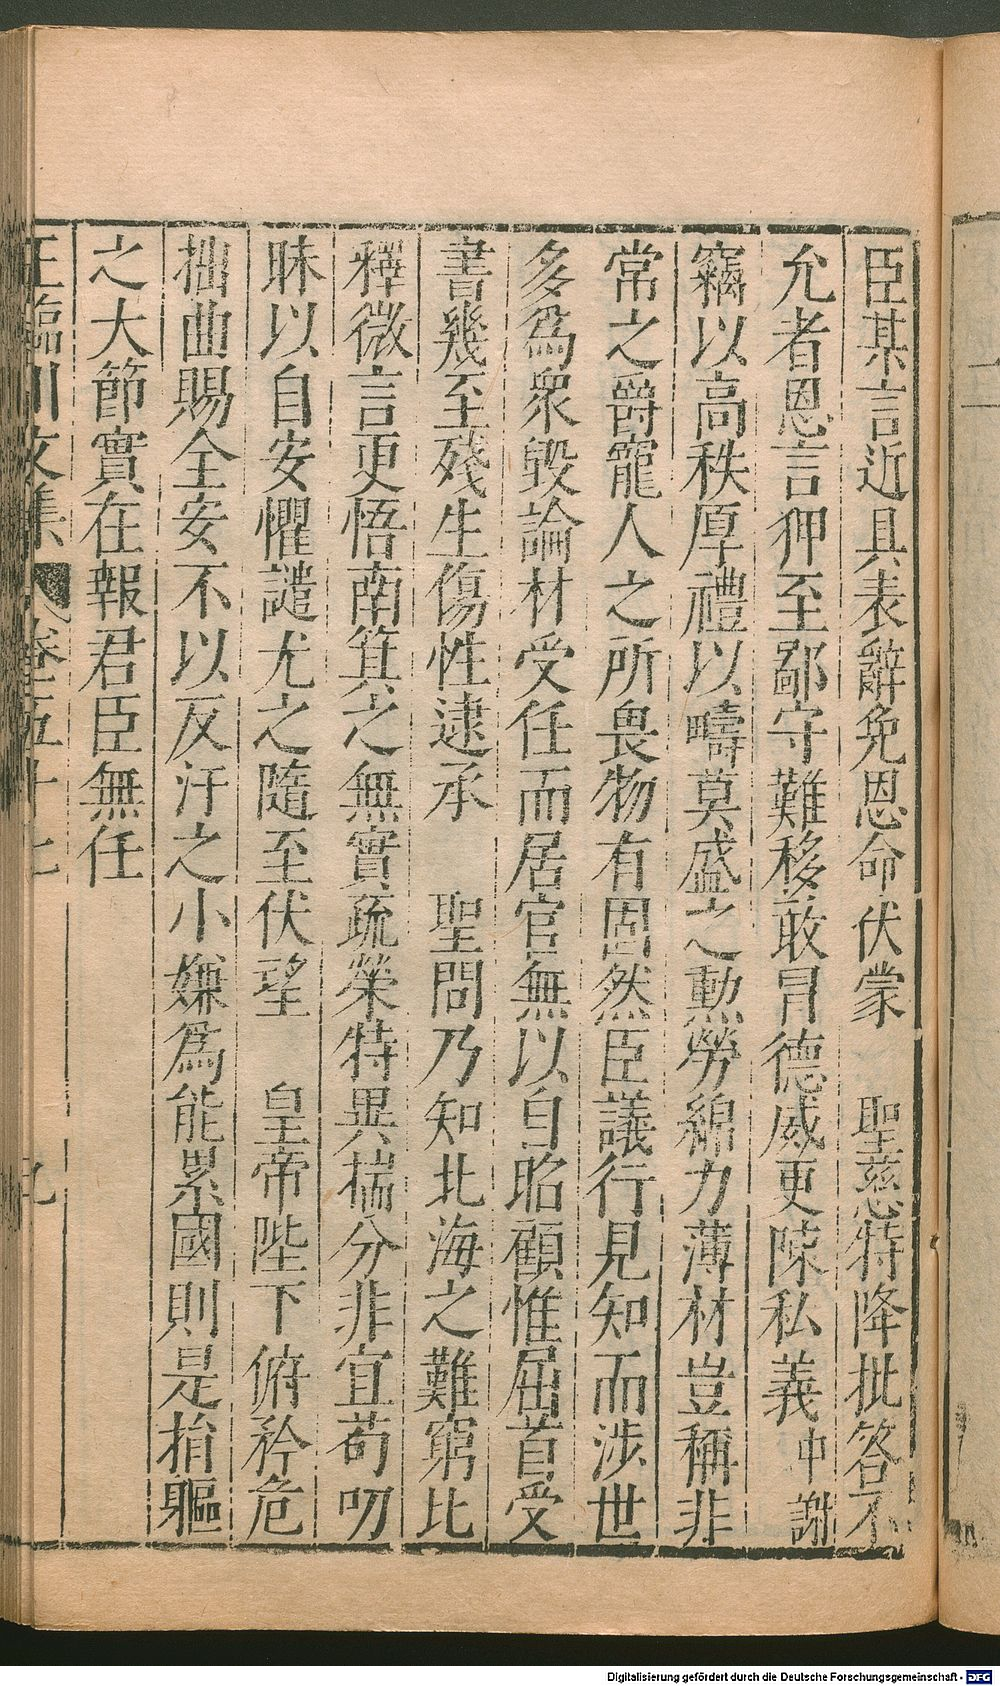 臣某言近具表辭免恩命伏蒙　聖慈特降批答不
允者恩言狎至鄙守難移敢冒德威更陳私義中謝
竊以高秩厚禮以疇莫盛之勲勞綿力薄材豈稱非
常之爵寵人之所畏物有固然臣議行見知而涉世
多爲衆毀論材受任而居官無以自昭顧惟屈首受
書幾至殘生傷性逮承　聖問乃知北海之難窮比
釋微言更悟南箕之無實疏榮特異揣分非宜苟叨
昧以自安懼譴尤之隨至伏望　皇帝陛下俯矜危
拙曲賜全安不以反汗之小嫌爲能累國則是捐軀
之大節實在報君臣無任
王臨川文集　卷五十七　九
Digitalisierung gefördert durch die Deutsche Forschungsgemeinschaft - DFG